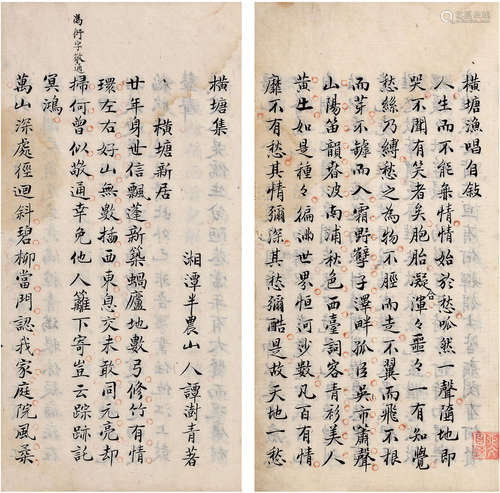 橫塘漁唱自敘
人生而不能無情情始於愁呱然一聲墮地即
哭不聞有笑者矣胞胎凝渾々噩々一有知覺
愁絲乃縛愁之為物不脛而走不翼而飛不根
而芽不罅而入霸野孽子澤畔孤臣吳市簫聲
山陽笛韻春波南浦秋色西臺詞客青衫美人
黃土如是種々徧沸世界恒河沙數凡百有情
靡不有愁其情彌深其愁彌酷是故天地一愁
橫塘集
湘潭半農山人譚澍青著
橫塘新居
廿年身世信飄蓬新築蝸廬地數弓修竹有情
環左右好山無數插西東息交未敢同元亮却
掃何曾似敬通幸免他人籬下寄豈云踪跡託
冥鴻
馮衍字敬通
萬山深處徑迴斜碧柳當門認我家庭院風柔